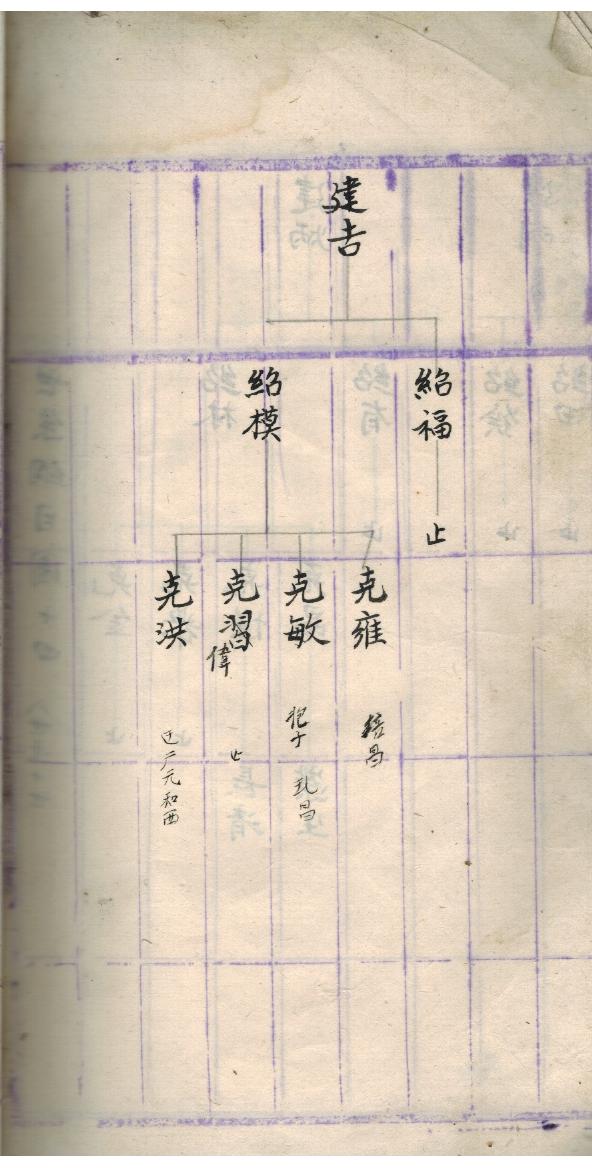 建吉
紹福
止
紹模
克雍
培昌
克敏
抱子
克習
偉
止
克洪
迁广元和西